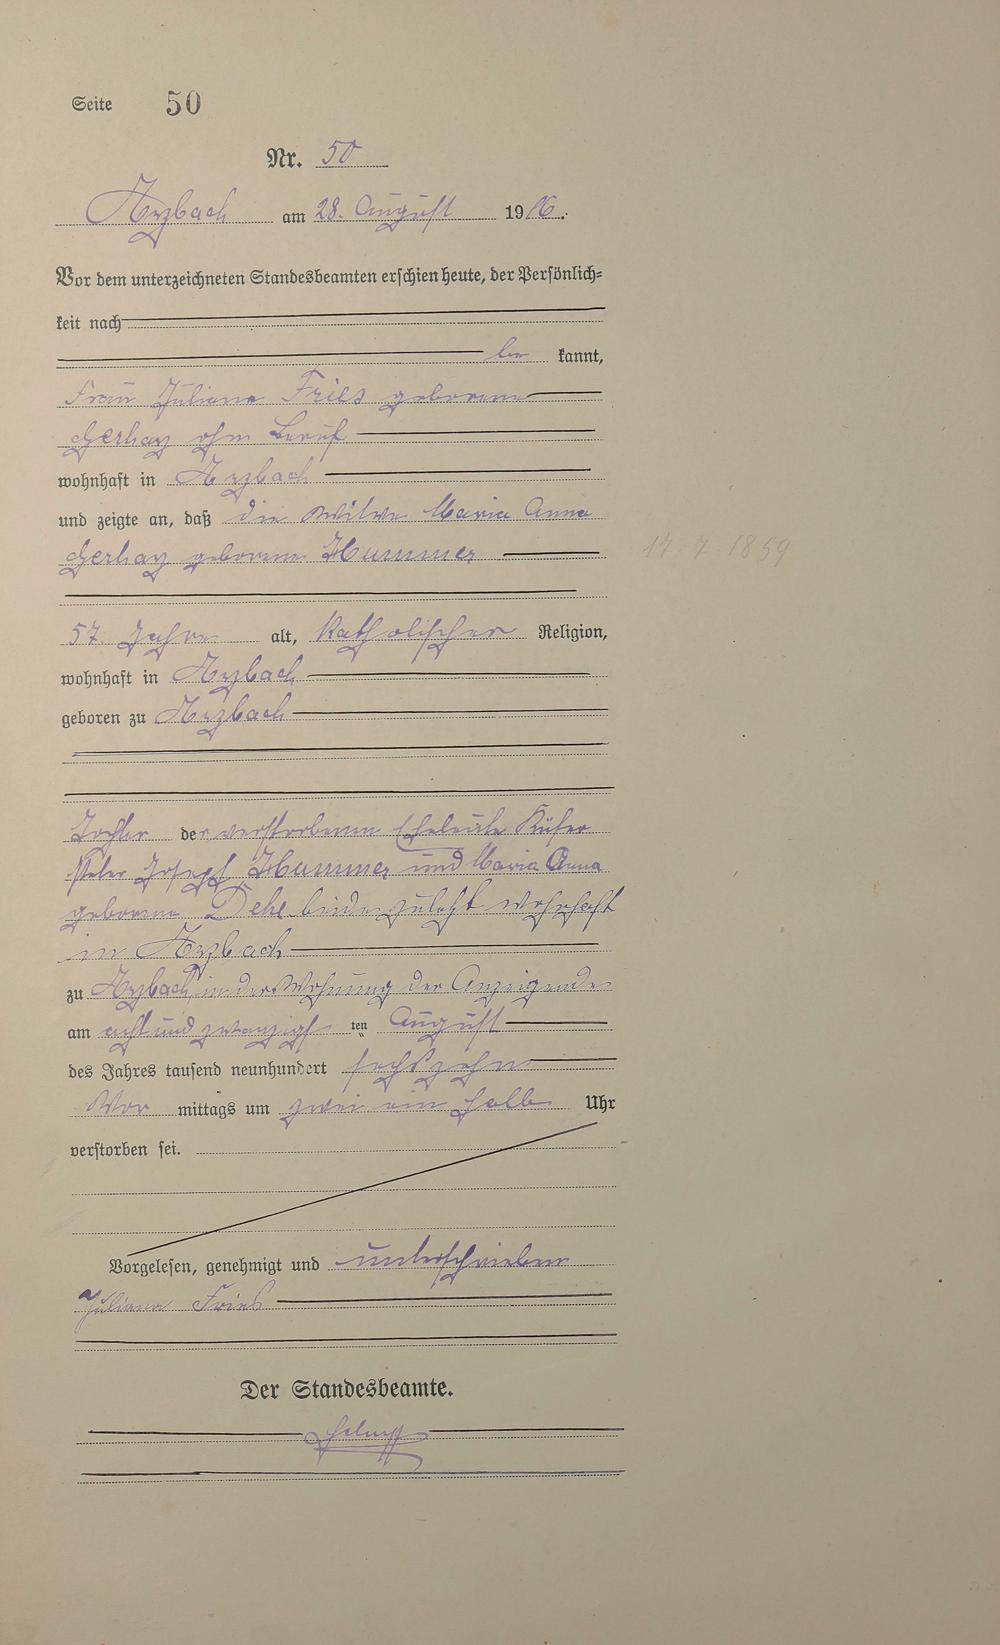 Seite 50
Nr. 50
Arzbach am 28. August 1916.
Vor dem unterzeichneten Standesbeamten erschien heute, der Persönlich=
keit nach
be kannt,
Frau Juliana Fries geborene
Gerhaz ohne Beruf
wohnhaft in Arzbach
und zeigte an, daß die Witwe Maria Anna
Gerhaz geborene Hummer
17.7.1859
57 Jahre alt, katholischer Religion,
wohnhaft in Arzbach
geboren zu Arzbach
Tochter der verstorbenen Eheleute Küfer
Peter Joseph Hummer und Maria Anna
geborene Dehe beide zuletzt wohnhaft
in Arzbach
zu Arzbach, in der Wohnung der Anzeigende
am acht und zwanzigsten August
des Jahres tausend neunhundert sechszehn
Vor mittags um zwei ein halb Uhr
verstorben sei.
Vorgelesen, genehmigt und unterschrieben
Juliana Fries
Der Standesbeamte.